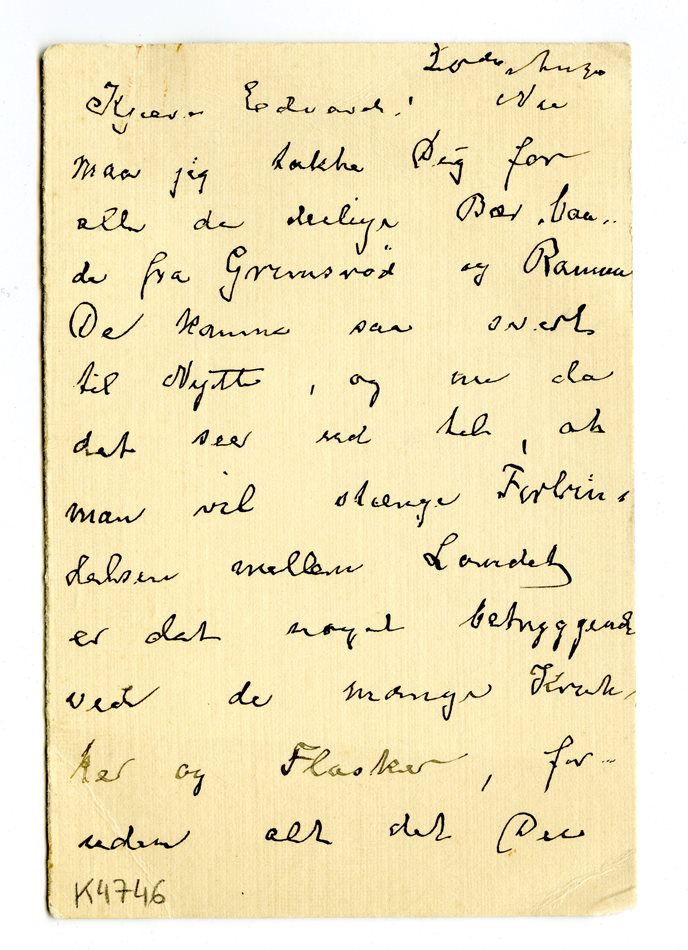 Kjære Edvard! Nu
maa jig takke Deig for
alle de deilige Bær, baa-
de fra Grimsrød og Ramme
De komme saa svært
til Nytte, og nu da
det seer ud tel, at
man vil stænge Forbin-
delsen mellem Landet,
er det noget betryggende
ved de mange Kruk-
ker og Flasker, for-
uden alt det Du
K4746